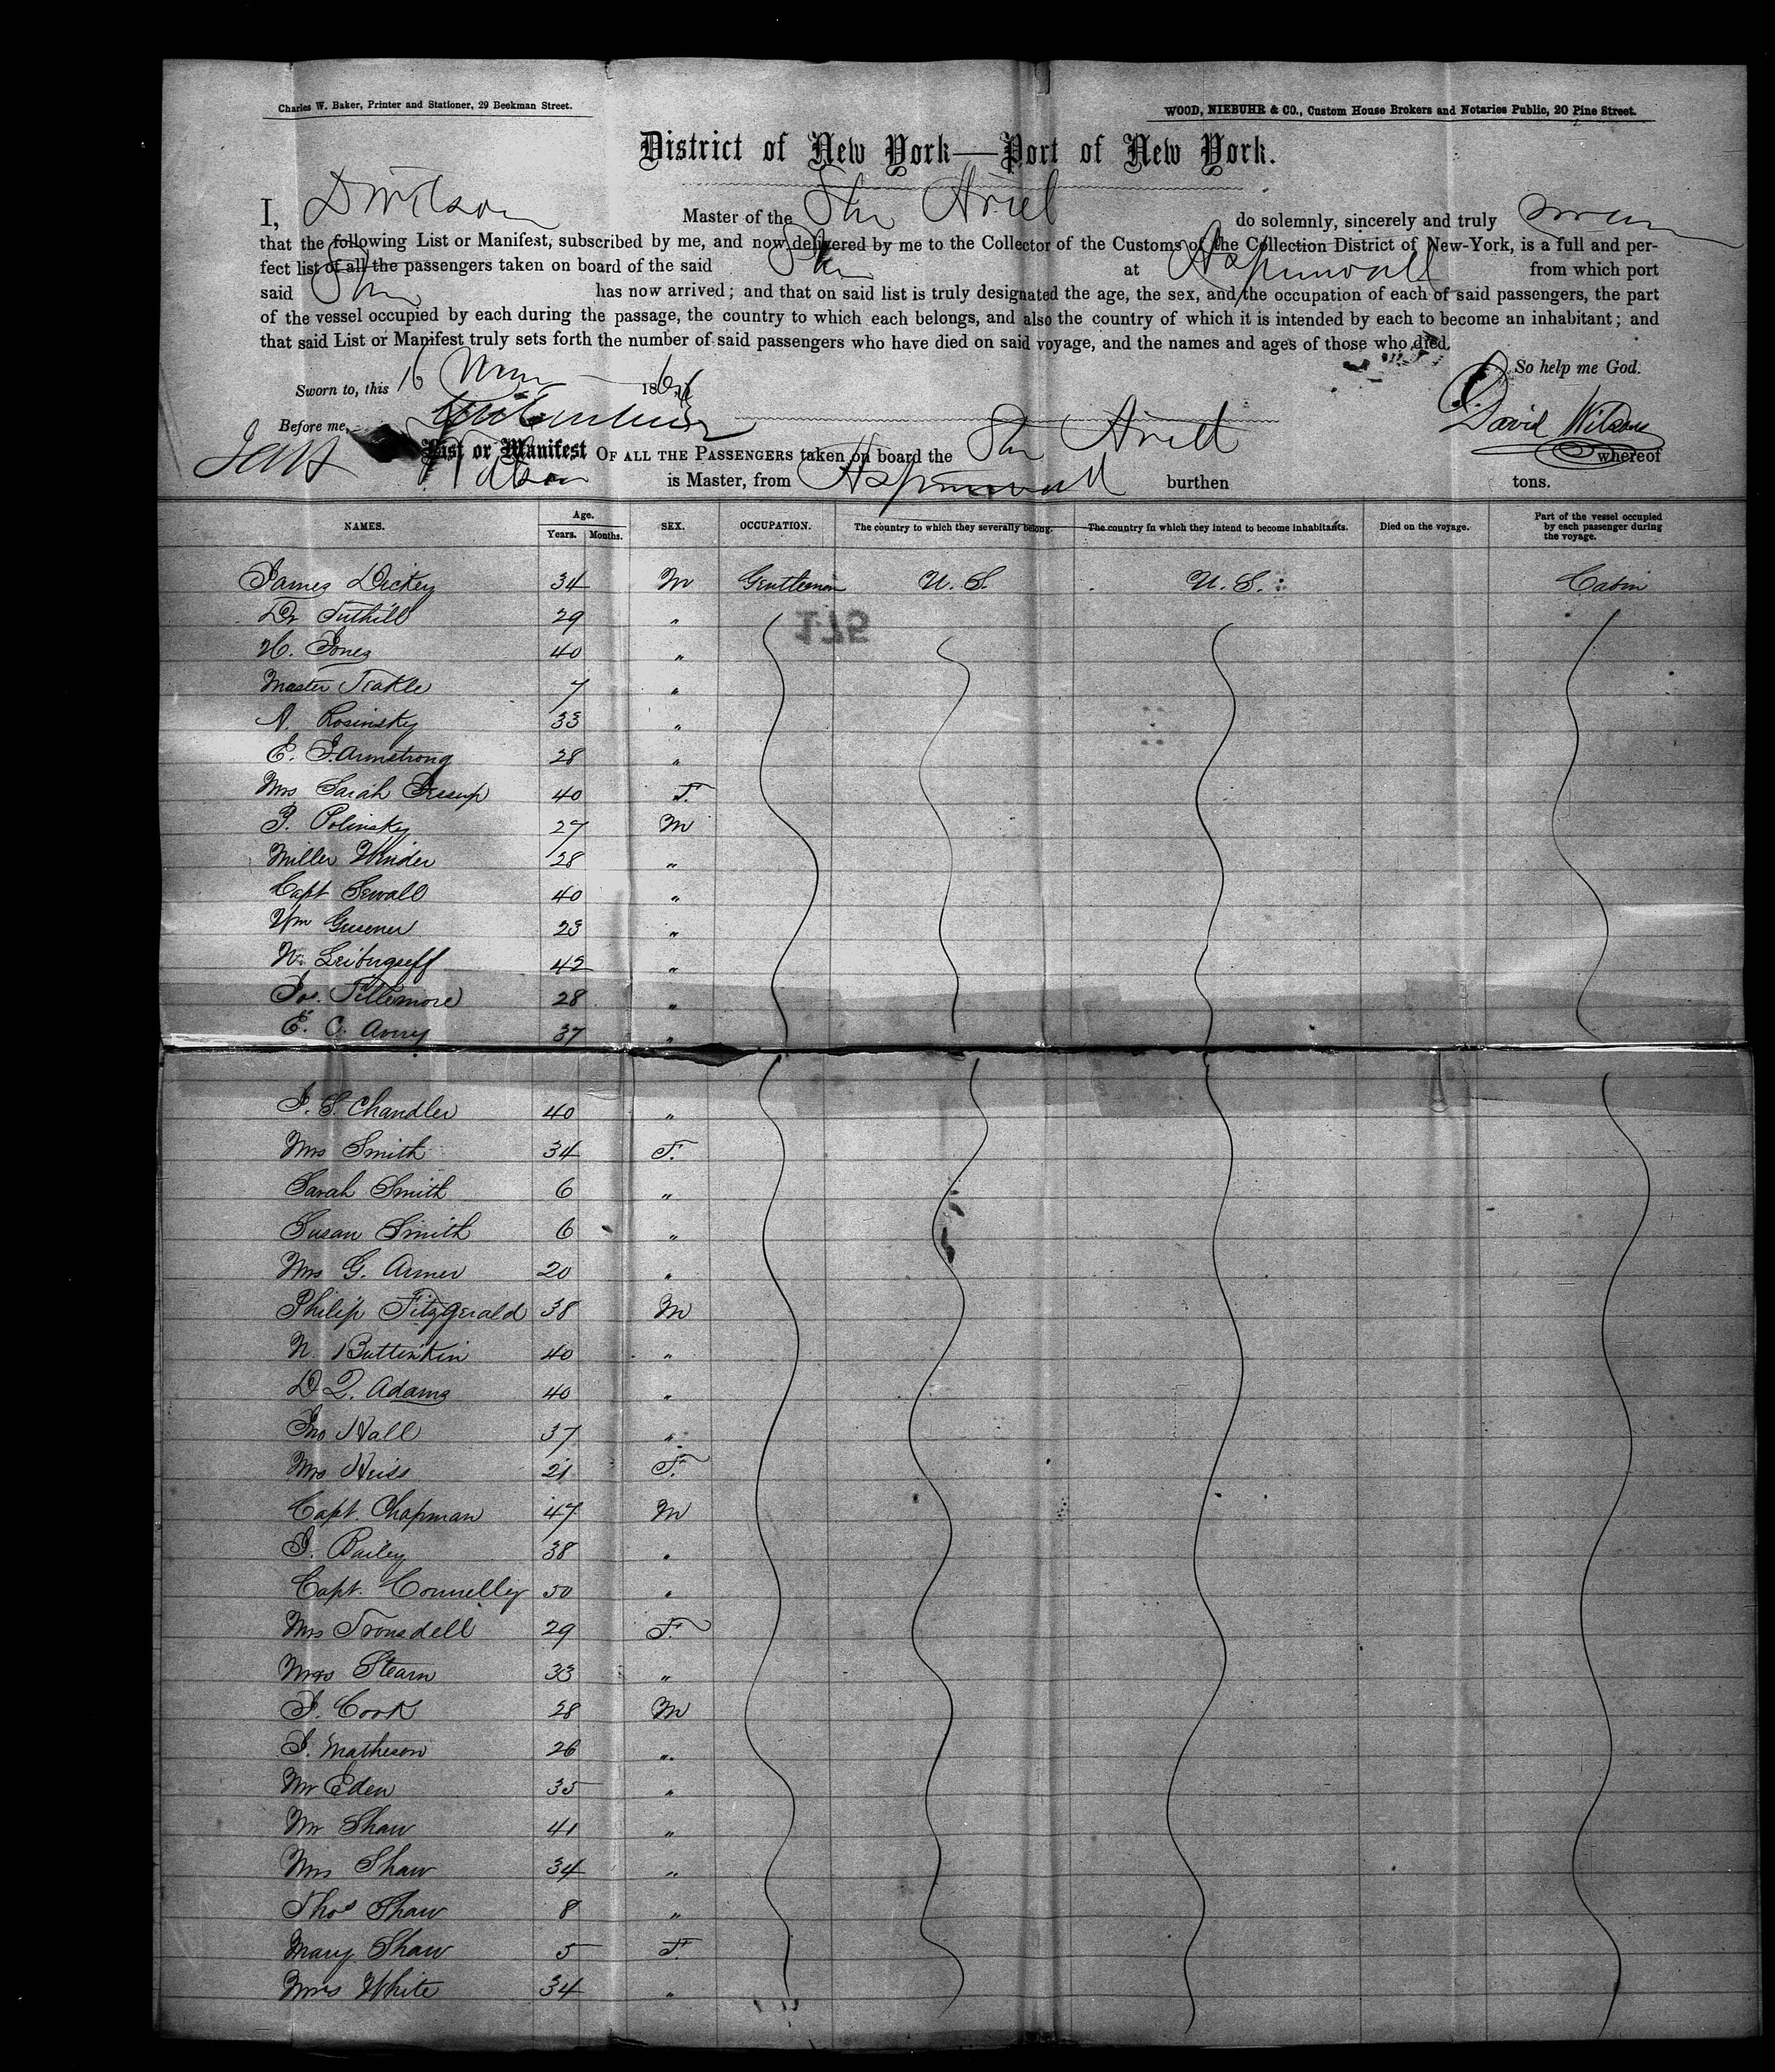 Charles W. Baker, Printer and Stationer, 29 Beekman Street.
WOOD, NIEBUHR & CO., Custom House Brokers and Notaries Public, 20 Pine Street.
District of New York—Port of New York.
I, D Wilson Master of the Str Ariel do solemnly, sincerely and truly swear
that the following List or Manifest, subscribed by me, and now delivered by me to the Collector of the Customs of the Collection District of New-York, is a full and per-
fect list of all the passengers taken on board of the said Str at Aspinwall from which port
said Str has now arrived; and that on said list is truly designated the age, the sex, and the occupation of each of said passengers, the part
of the vessel occupied by each during the passage, the country to which each belongs, and also the country of which it is intended by each to become an inhabitant; and
that said List or Manifest truly sets forth the number of said passengers who have died on said voyage, and the names and ages of those who died.
So help me God.
Sworn to, this 16 186
Before me,
David Wilson
List or Manifest OF ALL THE PASSENGERS taken on board the Str Ariel whereof
Wilson is Master, from Aspinwall burthen tons.
NAMES. Age. Years. Months. SEX. OCCUPATION. The country to which they severally belong. The country in which they intend to become inhabitants. Died on the voyage. Part of the vessel occupied by each passenger during the voyage.
James Dickey 34 M Gentleman U. S. U. S. Cabin
Dr Tuthill 29 "
H. Jones 40 "
Master Teakle 7 "
N. Rosinsky 33 "
E. J. Armstrong 28 "
Mrs Sarah Jessup 40 F.
J. Polinsky 27 M
Miller Winder 28 "
Capt Sewall 40 "
Wm Gusener 23 "
42 "
Jos. Fillemore 28 "
E. C. Avery 37 "
J. S. Chandler 40 "
Mrs Smith 34 F.
Sarah Smith 6 "
Susan Smith 6 "
Mrs G. Armer 20 "
Philip Fitzgerald 38 M
N. Buttinkin 40 "
D Q. Adams 40 "
Jno Hall 37 "
Mrs Heiss 21 F.
Capt. Chapman 47 M
J. Bailey 38 "
Capt. Connelly 50 "
Mrs Tronsdell 29 F.
Mrs Stearn 33 "
J. Cook 28 M
J. Matheson 26 "
Mr Eden 35 "
Mr Shaw 41 "
Mrs Shaw 34 "
Thos Shaw 8 "
Mary Shaw 5 F.
Mrs White 34 "